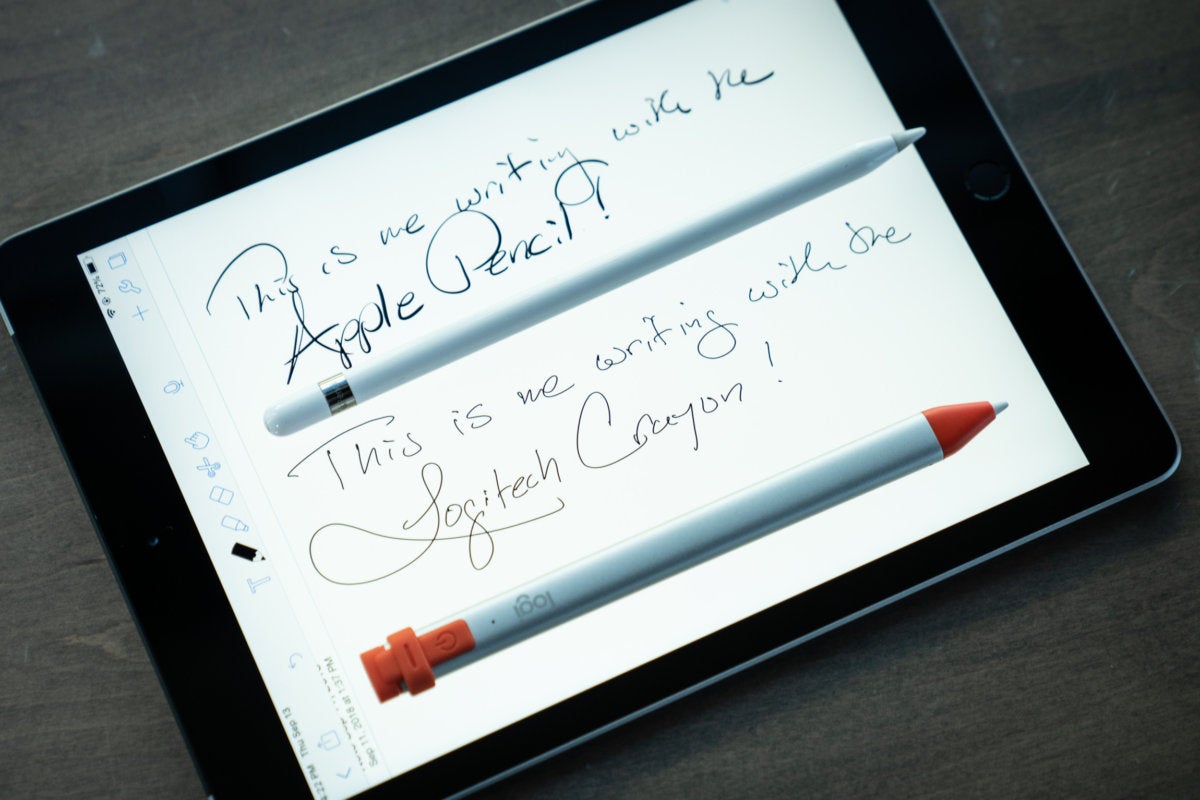 This is me writing with the
Apple Pencil!
This is me writing with the
Logitech Crayon!
logi
72%
T
Sep 11, 2018 at 1:37 PM
4:22 PM Thu Sep 13